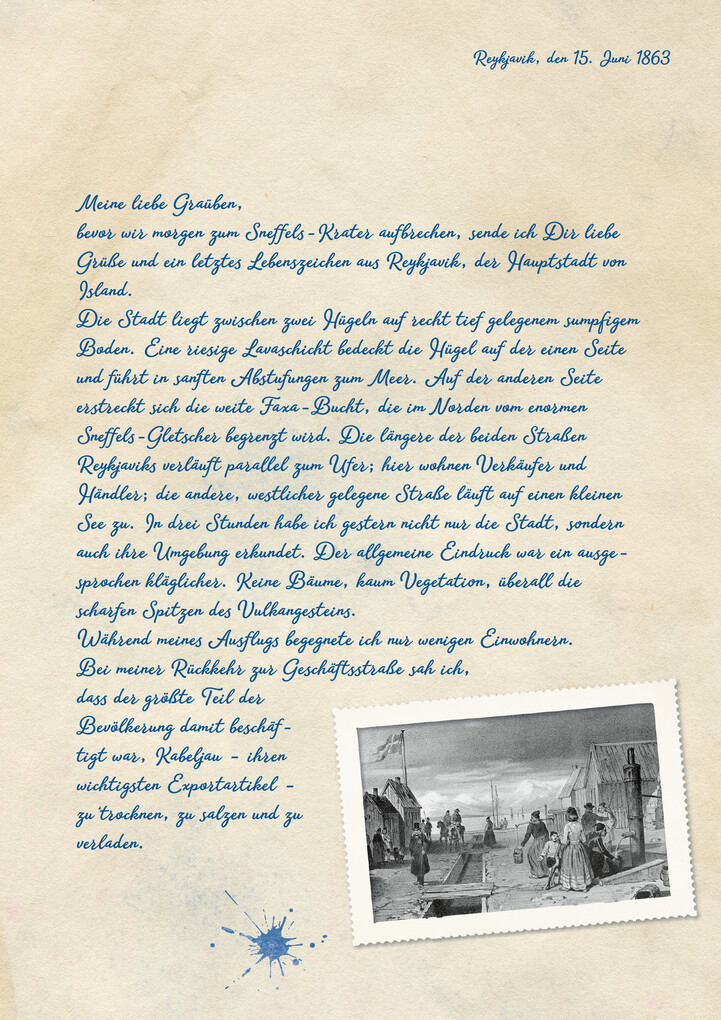 Reykjavik, den 15. Juni 1863
Meine liebe Graüben,
bevor wir morgen zum Sneffels-Krater aufbrechen, sende ich Dir liebe
Grüße und ein letztes Lebenszeichen aus Reykjavik, der Hauptstadt von
Island.
Die Stadt liegt zwischen zwei Hügeln auf recht tief gelegenem sumpfigem
Boden. Eine riesige Lavaschicht bedeckt die Hügel auf der einen Seite
und führt in sanften Abstufungen zum Meer. Auf der anderen Seite
erstreckt sich die weite Faxa-Bucht, die im Norden vom enormen
Sneffels-Gletscher begrenzt wird. Die längere der beiden Straßen
Reykjaviks verläuft parallel zum Ufer; hier wohnen Verkäufer und
Händler; die andere, westlicher gelegene Straße läuft auf einen kleinen
See zu. In drei Stunden habe ich gestern nicht nur die Stadt, sondern
auch ihre Umgebung erkundet. Der allgemeine Eindruck war ein ausge-
sprochen kläglicher. Keine Bäume, kaum Vegetation, überall die
scharfen Spitzen des Vulkangesteins.
Während meines Ausflugs begegnete ich nur wenigen Einwohnern.
Bei meiner Rückkehr zur Geschäftsstraße sah ich,
dass der größte Teil der
Bevölkerung damit beschäf-
tigt war, Kabeljau - ihren
wichtigsten Exportartikel -
zu trocknen, zu salzen und zu
verladen.